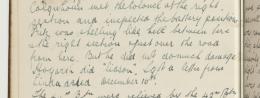 Colquhoun met the Colonel at the right
Station and inspected the battery position.
Fritz was shelling like hell between here
the right section & just over the road
from here. But he did not do much damage
Hogarth did "liaison". Got a letter from
dated December 10th.
The Bn were relieved by the 42nd Bn